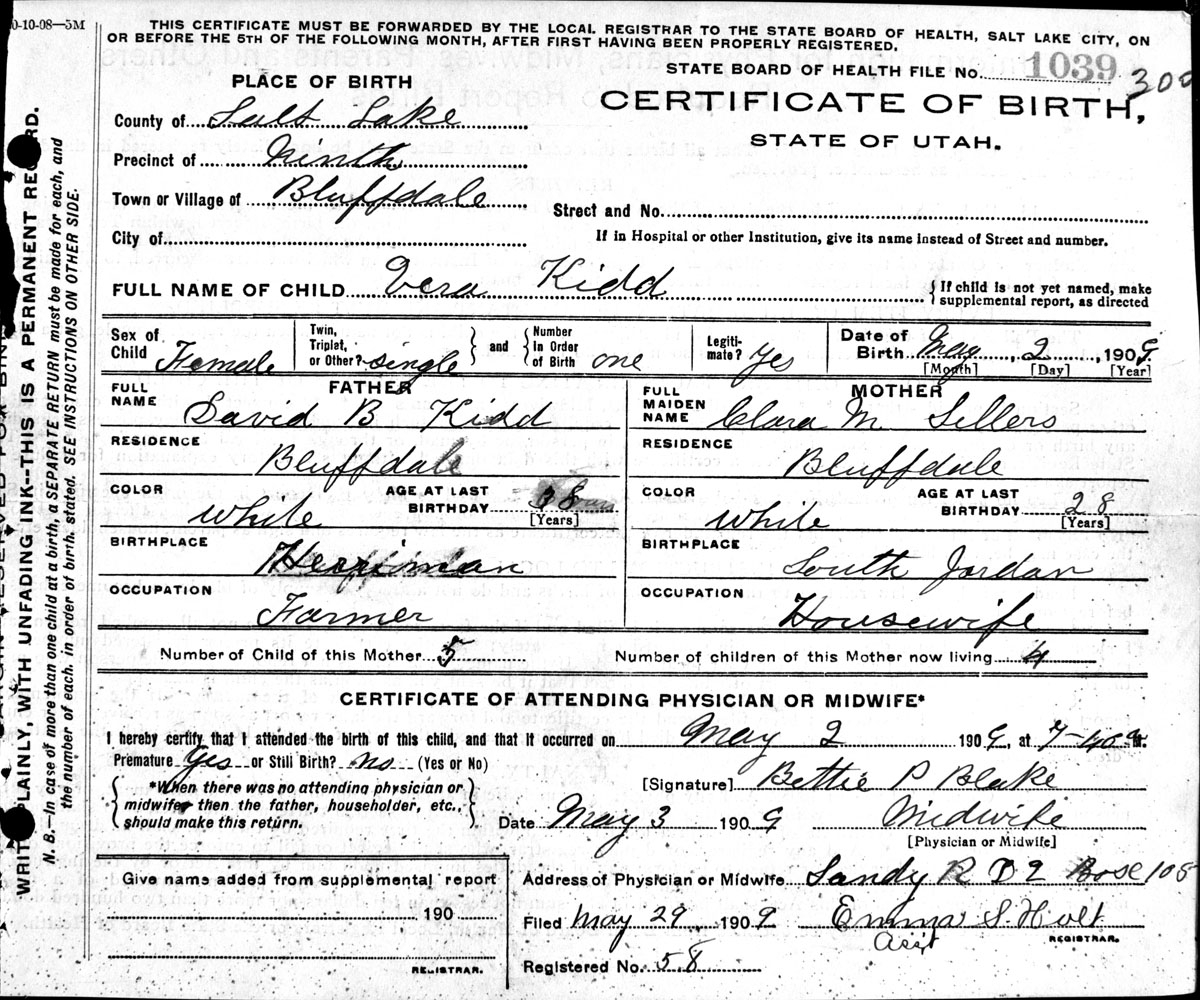 0-10-08—5M
THIS CERTIFICATE MUST BE FORWARDED BY THE LOCAL REGISTRAR TO THE STATE BOARD OF HEALTH, SALT LAKE CITY, ON
OR BEFORE THE 5TH OF THE FOLLOWING MONTH, AFTER FIRST HAVING BEEN PROPERLY REGISTERED.
STATE BOARD OF HEALTH FILE No. 1039 300
PLACE OF BIRTH
CERTIFICATE OF BIRTH,
STATE OF UTAH.
County of Salt Lake
Precinct of Ninth
Town or Village of Bluffdale
Street and No.
City of
If in Hospital or other Institution, give its name instead of Street and number.
FULL NAME OF CHILD Vera Kidd
{If child is not yet named, make
supplemental report, as directed
Sex of Child Female
Twin, Triplet, or Other? single
and
Number In Order of Birth one
Legiti-mate? Yes
Date of Birth May, 2, 1909
[Month] [Day] [Year]
FATHER
FULL NAME David B Kidd
RESIDENCE
Bluffdale
COLOR white
AGE AT LAST BIRTHDAY 38
[Years]
BIRTHPLACE
Herriman
OCCUPATION
Farmer
MOTHER
FULL MAIDEN NAME Clara M. Sellers
RESIDENCE
Bluffdale
COLOR white
AGE AT LAST BIRTHDAY 28
[Years]
BIRTHPLACE
South Jordan
OCCUPATION
Housewife
Number of Child of this Mother 5
Number of children of this Mother now living 4
CERTIFICATE OF ATTENDING PHYSICIAN OR MIDWIFE*
I hereby certify that I attended the birth of this child, and that it occurred on May 2 1909, at 7-40 a M.
Premature Yes or Still Birth? no (Yes or No)
{*When there was no attending physician or
midwife then the father, householder, etc.,
should make this return.}
[Signature] Bettie P Blake
Date May 3 1909
Midwife
[Physician or Midwife]
Give name added from supplemental report
190
REGISTRAR.
Address of Physician or Midwife Sandy R D 2 Box 108
Filed May 29 1909 Emma S. Holt
Asst REGISTRAR.
Registered No. 58
WRITE PLAINLY, WITH UNFADING INK--THIS IS A PERMANENT RECORD.
N. B.—In case of more than one child at a birth, a SEPARATE RETURN must be made for each, and
the number of each, in order of birth, stated. SEE INSTRUCTIONS ON OTHER SIDE.